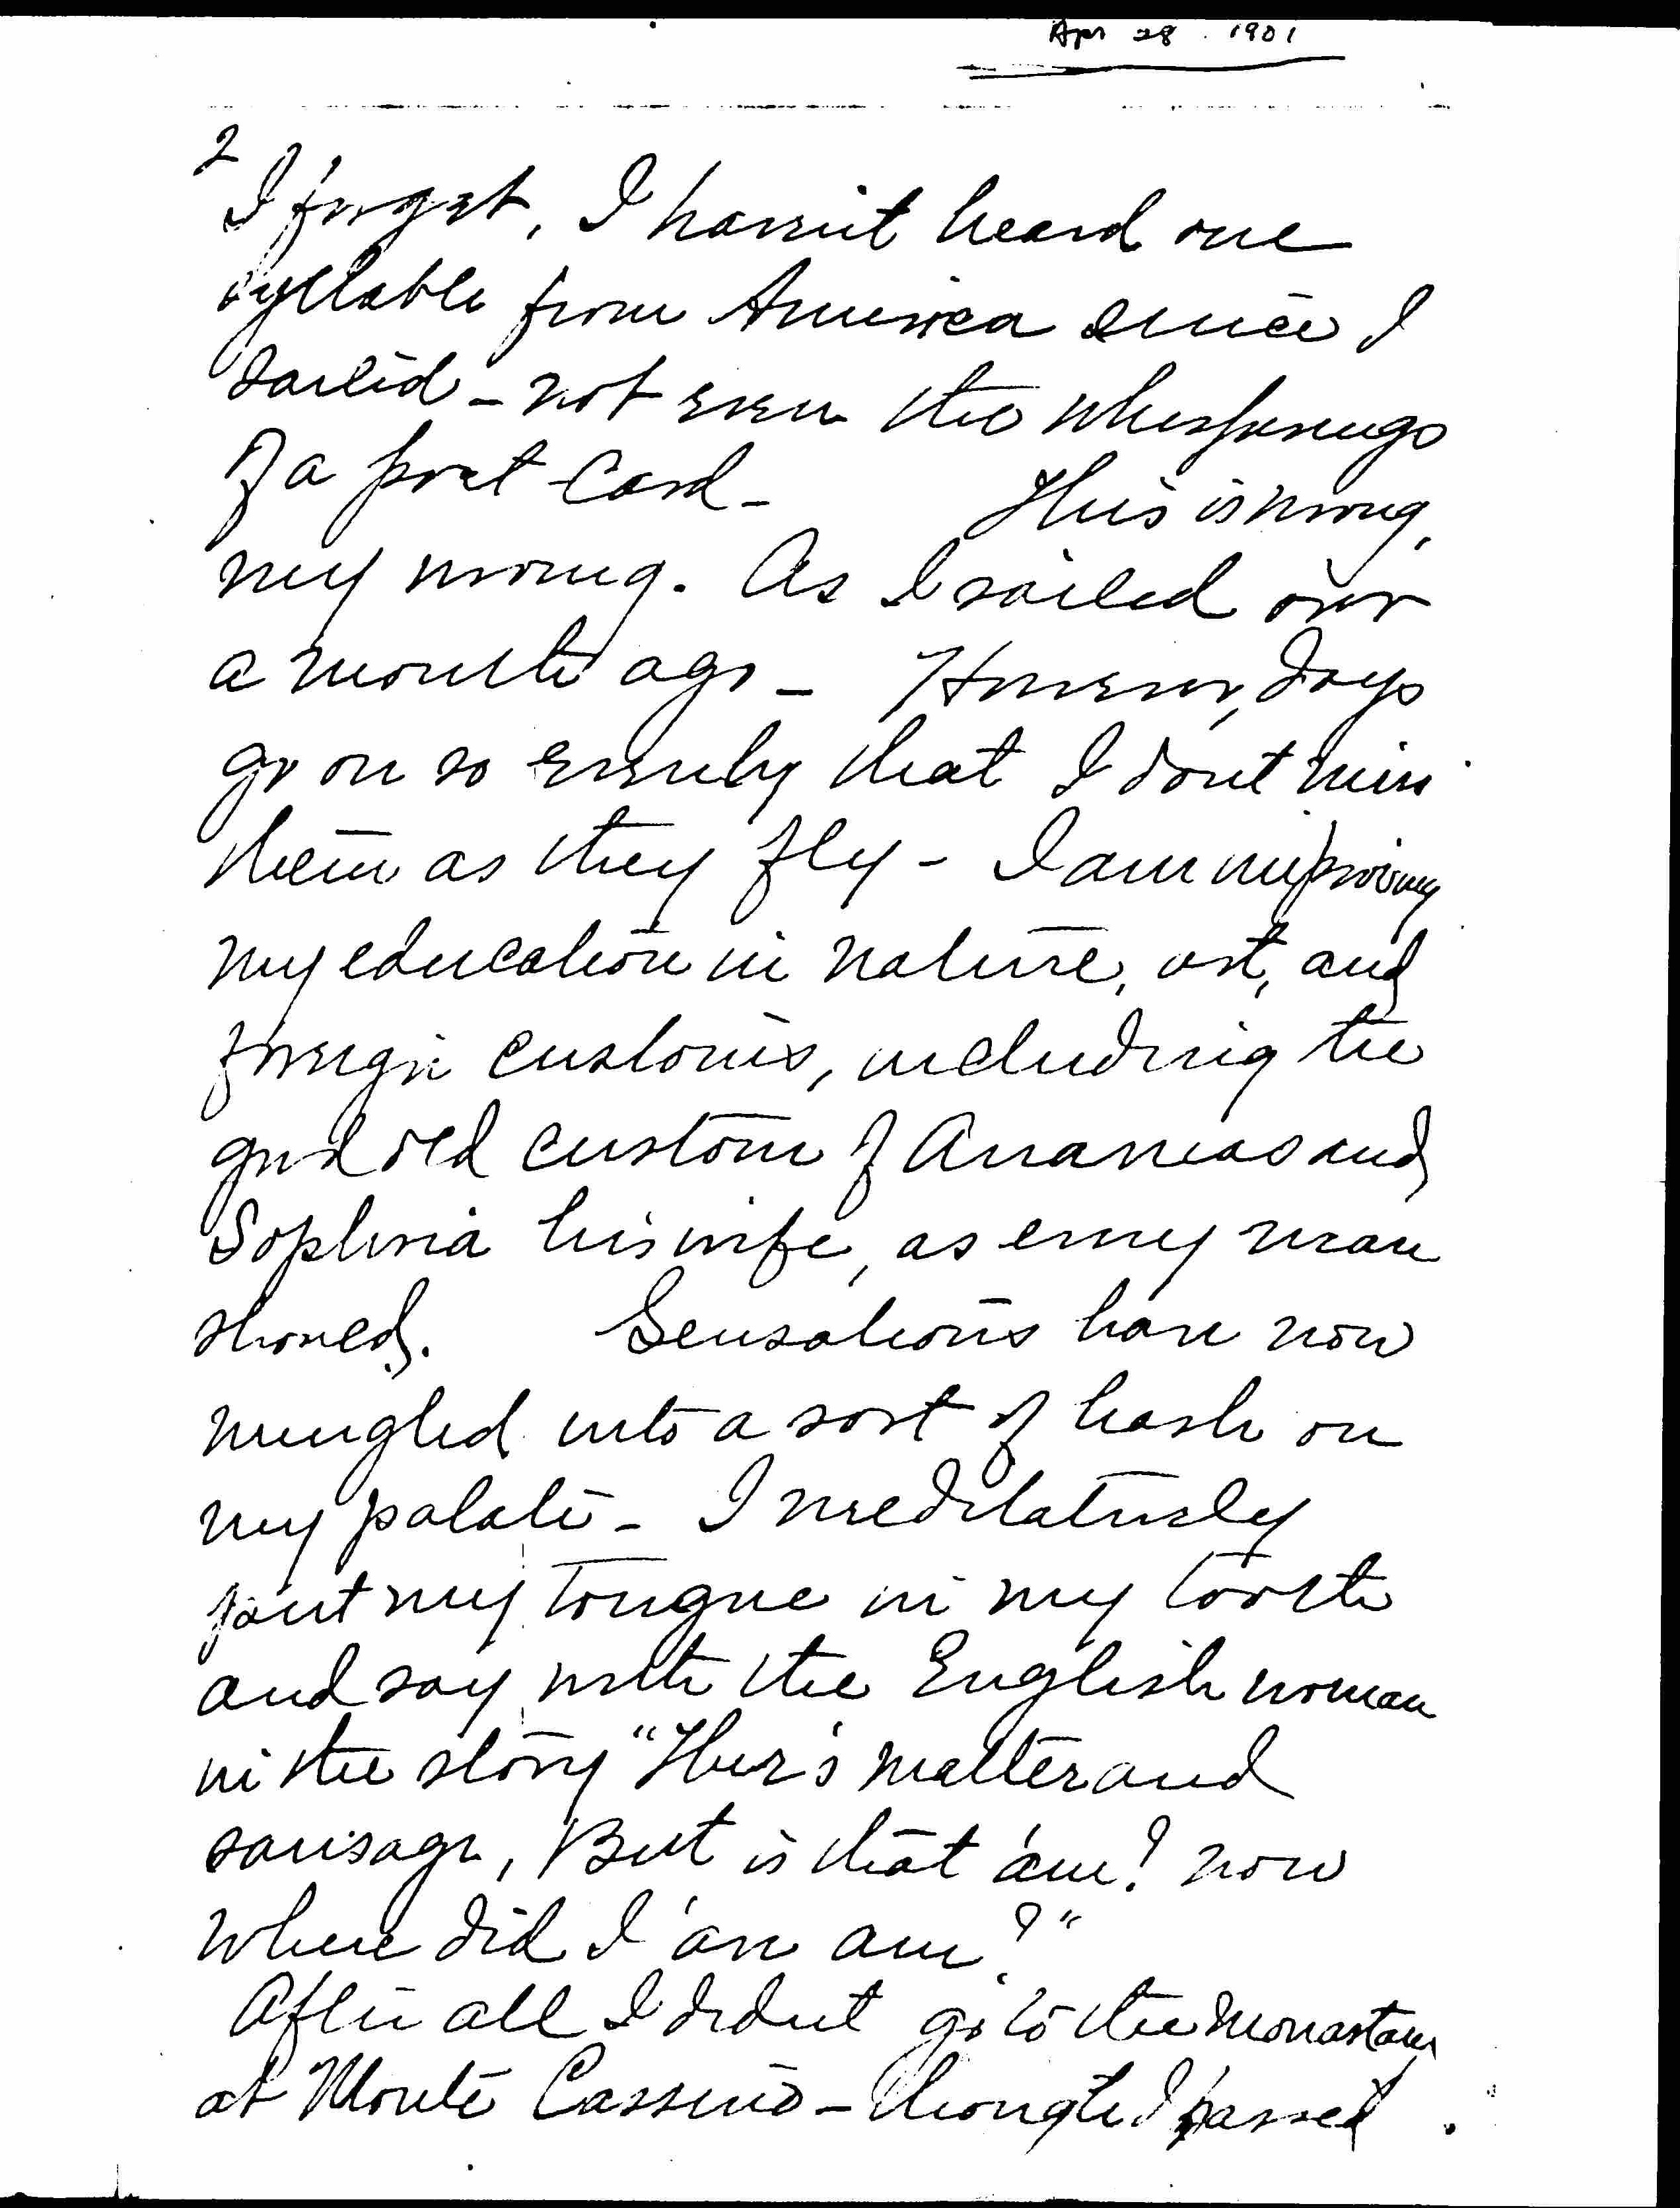 Apr 28. 1901
2
I forget, I havn't heard one
syllable from America since I
sailed - not even the whisperings
of a post-card - This is wrong,
very wrong. As I sailed over
a month ago - However, days
go on so evenly that I dont miss
them as they fly - I am improving
my education in nature, art, and
foreign customs, including the
good old custom of Ananias and
Sophiria his wife, as every man
should. Sensations have now
mingled into a sort of hash on
my palate - I meditatively
put my tongue in my tooth
and say with the English woman
in the story "Ther's
sausage, But is that 'am! now
where did I 'ave am?"
After all I didnt go to the Monastary
at Monte Cassino - though I passed